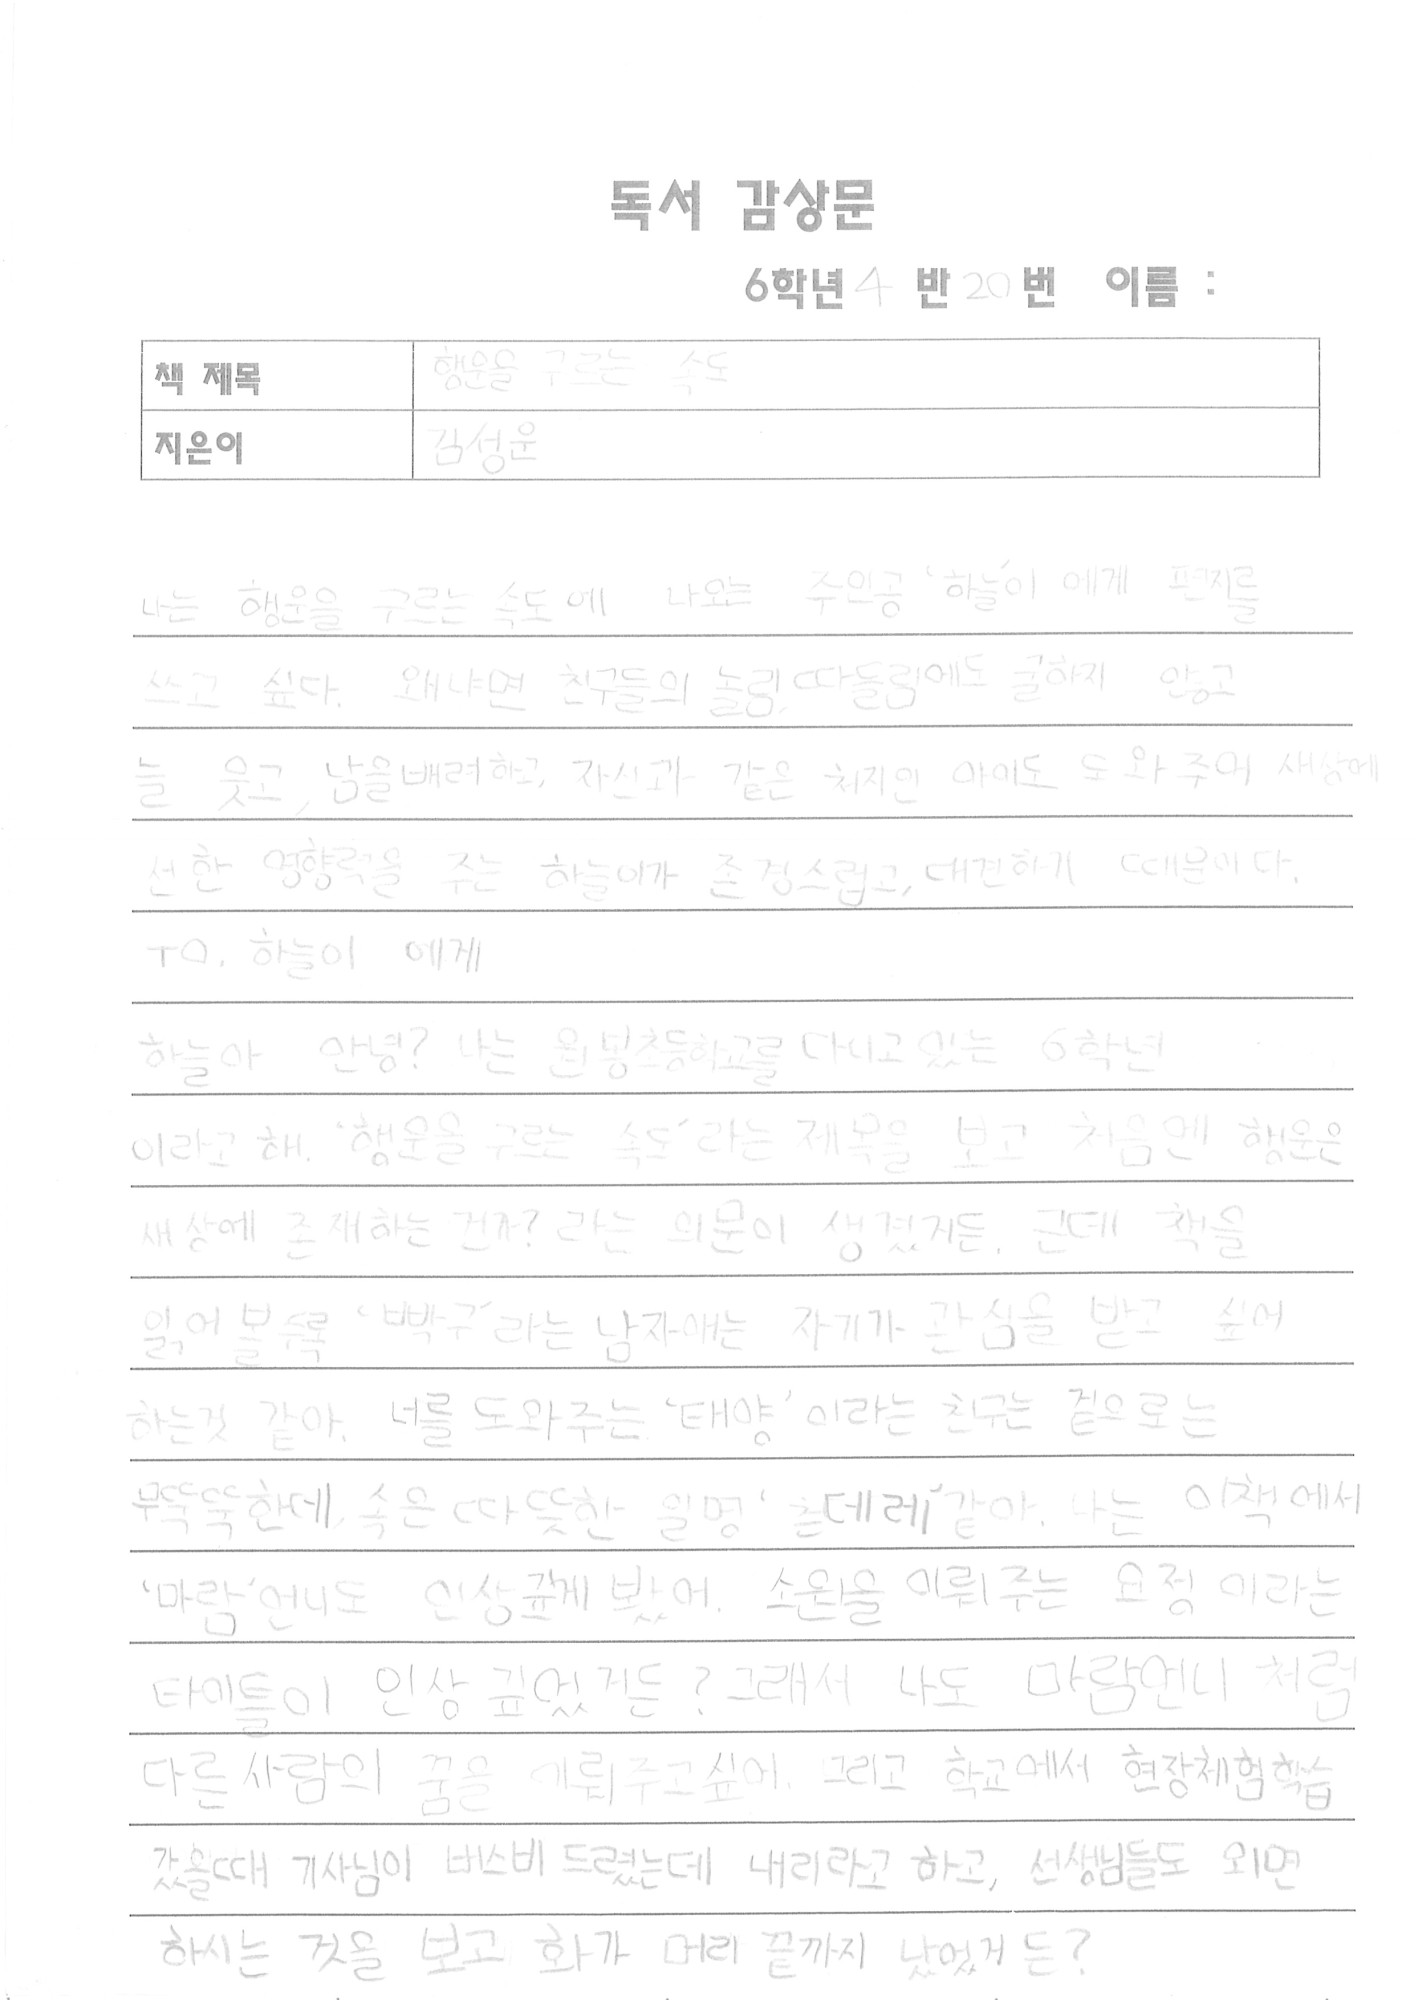 독서 감상문
6학년 4 반 20 번 이름 :
책 제목 행운을 구르는 속도
지은이 김성운
나는 행운을 구르는 속도에 나오는 주인공 '하늘'이 에게 편지를
쓰고 싶다. 왜냐면 친구들의 놀림, 따돌림에도 굴하지 않고
늘 웃고, 남을 배려하고, 자신과 같은 처지인 아이도 도와주어 새상에
선한 영향력을 주는 하늘이가 존경스럽고, 대견하기 때문이다.
TO. 하늘이 에게
하늘아 안녕? 나는 초등학교를 다니고 있는 6학년
이라고 해. '행운을 구르는 속도'라는 제목을 보고 처음엔 행운은
새상에 존재하는 건가? 라는 의문이 생겼거든. 근데 책을
읽어 볼수록 '빡구'라는 남자애는 자기가 관심을 받고 싶어
하는것 같아. 너를 도와주는 '태양' 이라는 친구는 겉으로는
무뚝뚝한데, 속은 따뜻한 일명 '츤데레' 같아. 나는 이책에서
'마람'언니도 인상깊게 봤어. 소원을 이뤄주는 요정 이라는
타이틀이 인상 깊었거든? 그래서 나도 마람언니 처럼
다른사람의 꿈을 이뤄주고싶어. 그리고 학교에서 현장체험학습
갔을때 기사님이 버스비 드렸는데 내리라고 하고, 선생님들도 외면
하시는 것을 보고 화가 머리 끝까지 났었거든?